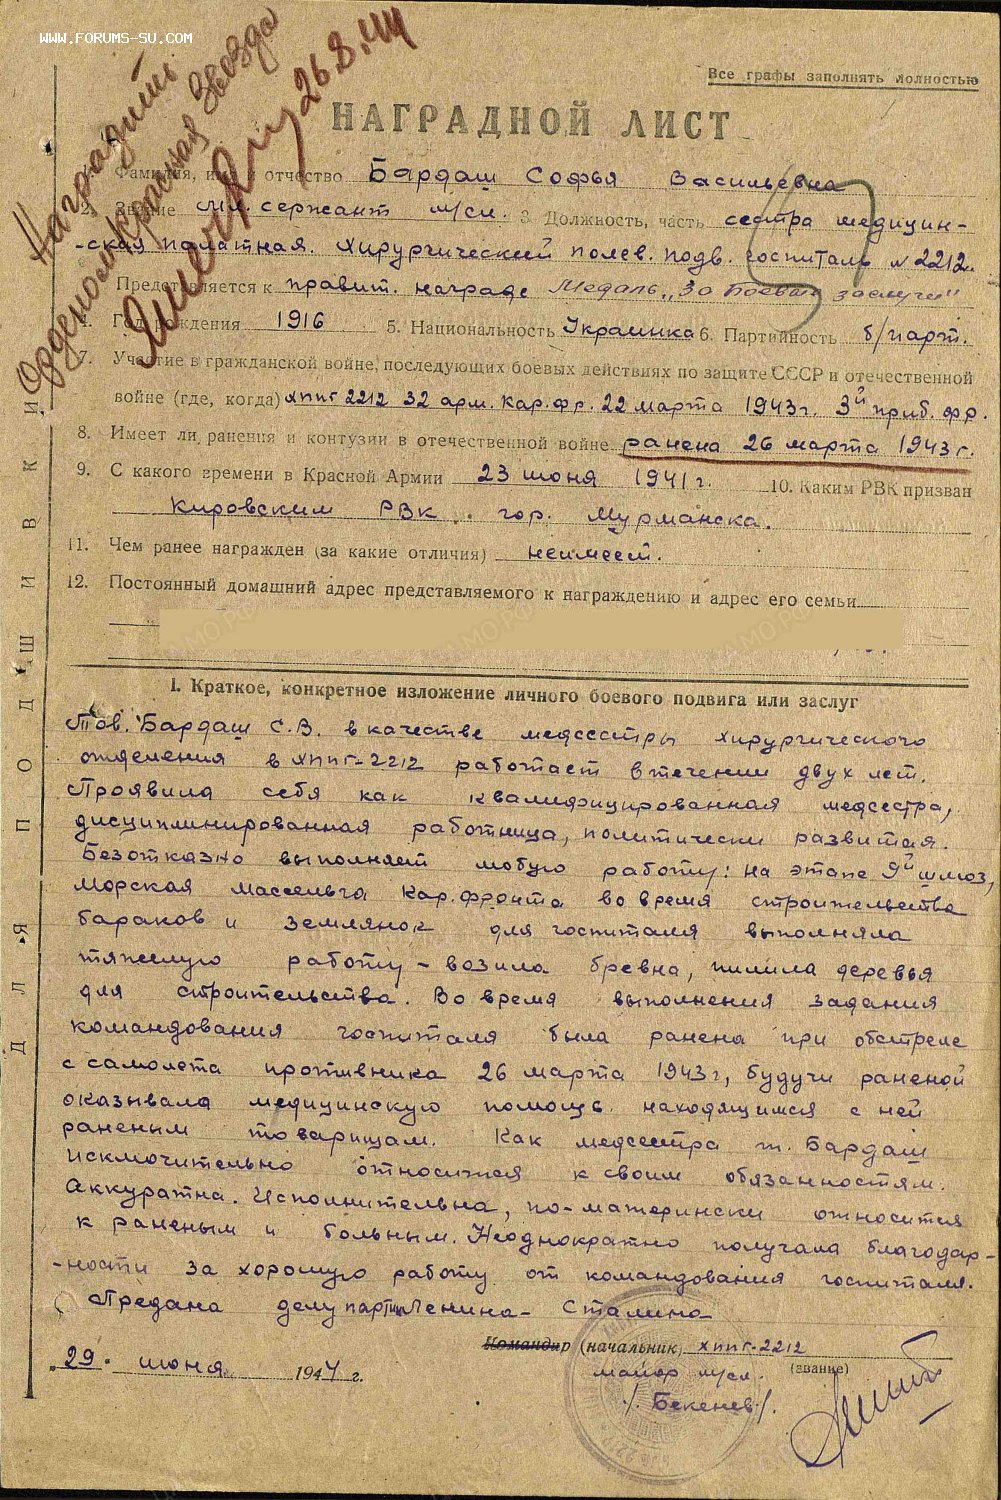 WWW.FORUMS-SU.COM
Наградить
Орденом Красная Звезда
26.8.44
Все графы заполнять полностью
НАГРАДНОЙ ЛИСТ
1. Фамилия, имя и отчество Бардаш Софья Васильевна
2. Звание мл. сержант м/сл. 3. Должность, часть сестра медицин-
-ская палатная. Хирургический полев. подв. госпиталь № 2212.
Представляется к правит. награде Медаль „За боевые заслуги"
4. Год рождения 1916 5. Национальность Украинка 6. Партийность б/парт.
7. Участие в гражданской войне, последующих боевых действиях по защите СССР и отечественной
войне (где, когда) хппг 2212 32 арм. Кар. фр. 22 марта 1943 г. 3й приб. фр.
8. Имеет ли ранения и контузии в отечественной войне ранена 26 марта 1943 г.
9. С какого времени в Красной Армии 23 июня 1941 г. 10. Каким РВК призван
Кировским РВК. гор. Мурманска.
11. Чем ранее награжден (за какие отличия) неимеет.
12. Постоянный домашний адрес представляемого к награждению и адрес его семьи
1. Краткое, конкретное изложение личного боевого подвига или заслуг
Тов. Бардаш С.В. в качестве медсестры хирургического
отделения в хппг-2212 работает в течении двух лет.
Проявила себя как квалифицированная медсестра,
дисциплинированная работница, политически развитая.
Безотказно выполняет любую работу: на этапе 9й шлюз,
Морская Массельга Кар. фронта во время строительства
бараков и землянок для госпиталя выполняла
тяжелую работу – возила бревна, пилила деревья
для строительства. Во время выполнения задания
командования госпиталя была ранена при обстреле
с самолета противника 26 марта 1943 г, будучи раненой
оказывала медицинскую помощь находящимся с ней
раненым товарищам. Как медсестра т. Бардаш
исключительно относится к своим обязанностям.
Аккуратна. Исполнительна, по-матерински относится
к раненым и больным. Неоднократно получала благодар-
-ности за хорошую работу от командования госпиталя.
Предана делу партии Ленина – Сталина
Командир (начальник) хппг-2212
29. июня 1944 г.
майор м/сл. (звание)
/Бекенев/.
ДЛЯ ПОДШИВКИ